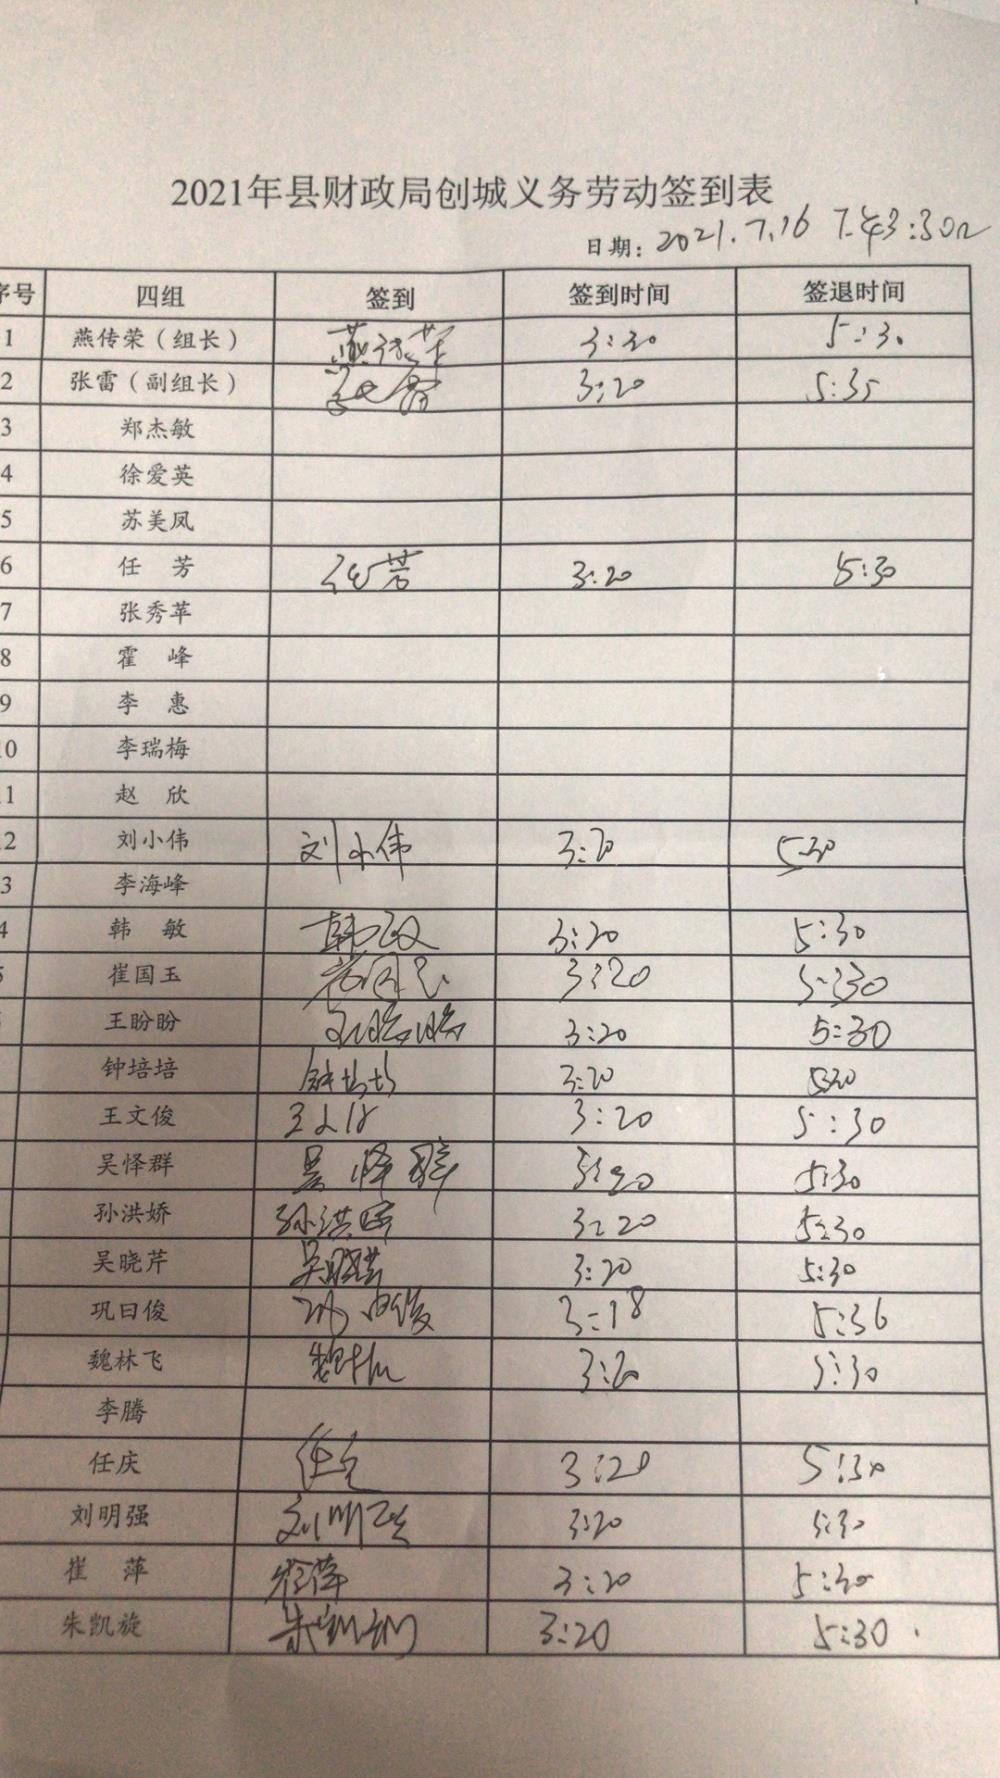 2021年县财政局创城义务劳动签到表
日期: 2021.7.16 下午3:30
序号 四组 签到 签到时间 签退时间
1 燕传荣（组长） 燕传荣 3:20 5:30
2 张雷（副组长） 张雷 3:20 5:35
3 郑杰敏
4 徐爱英
5 苏美凤
6 任 芳 任芳 3:20 5:30
7 张秀苹
8 霍 峰
9 李 惠
10 李瑞梅
11 赵 欣
2 刘小伟 刘小伟 3:20 5:30
3 李海峰
4 韩 敏 韩敏 3:20 5:30
5 崔国玉 崔国玉 3:20 5:30
王盼盼 王盼盼 3:20 5:30
钟培培 钟培培 3:20 5:30
王文俊 王文俊 3:20 5:30
吴怿群 吴怿群 3:20 5:30
孙洪娇 孙洪娇 3:20 5:30
吴晓芹 吴晓芹 3:20 5:30
巩曰俊 巩曰俊 3:18 5:36
魏林飞 魏林飞 3:20 5:30
李腾
任庆 任庆 3:20 5:30
刘明强 刘明强 3:20 5:30
崔 萍 崔萍 3:20 5:30
朱凯旋 朱凯旋 3:20 5:30